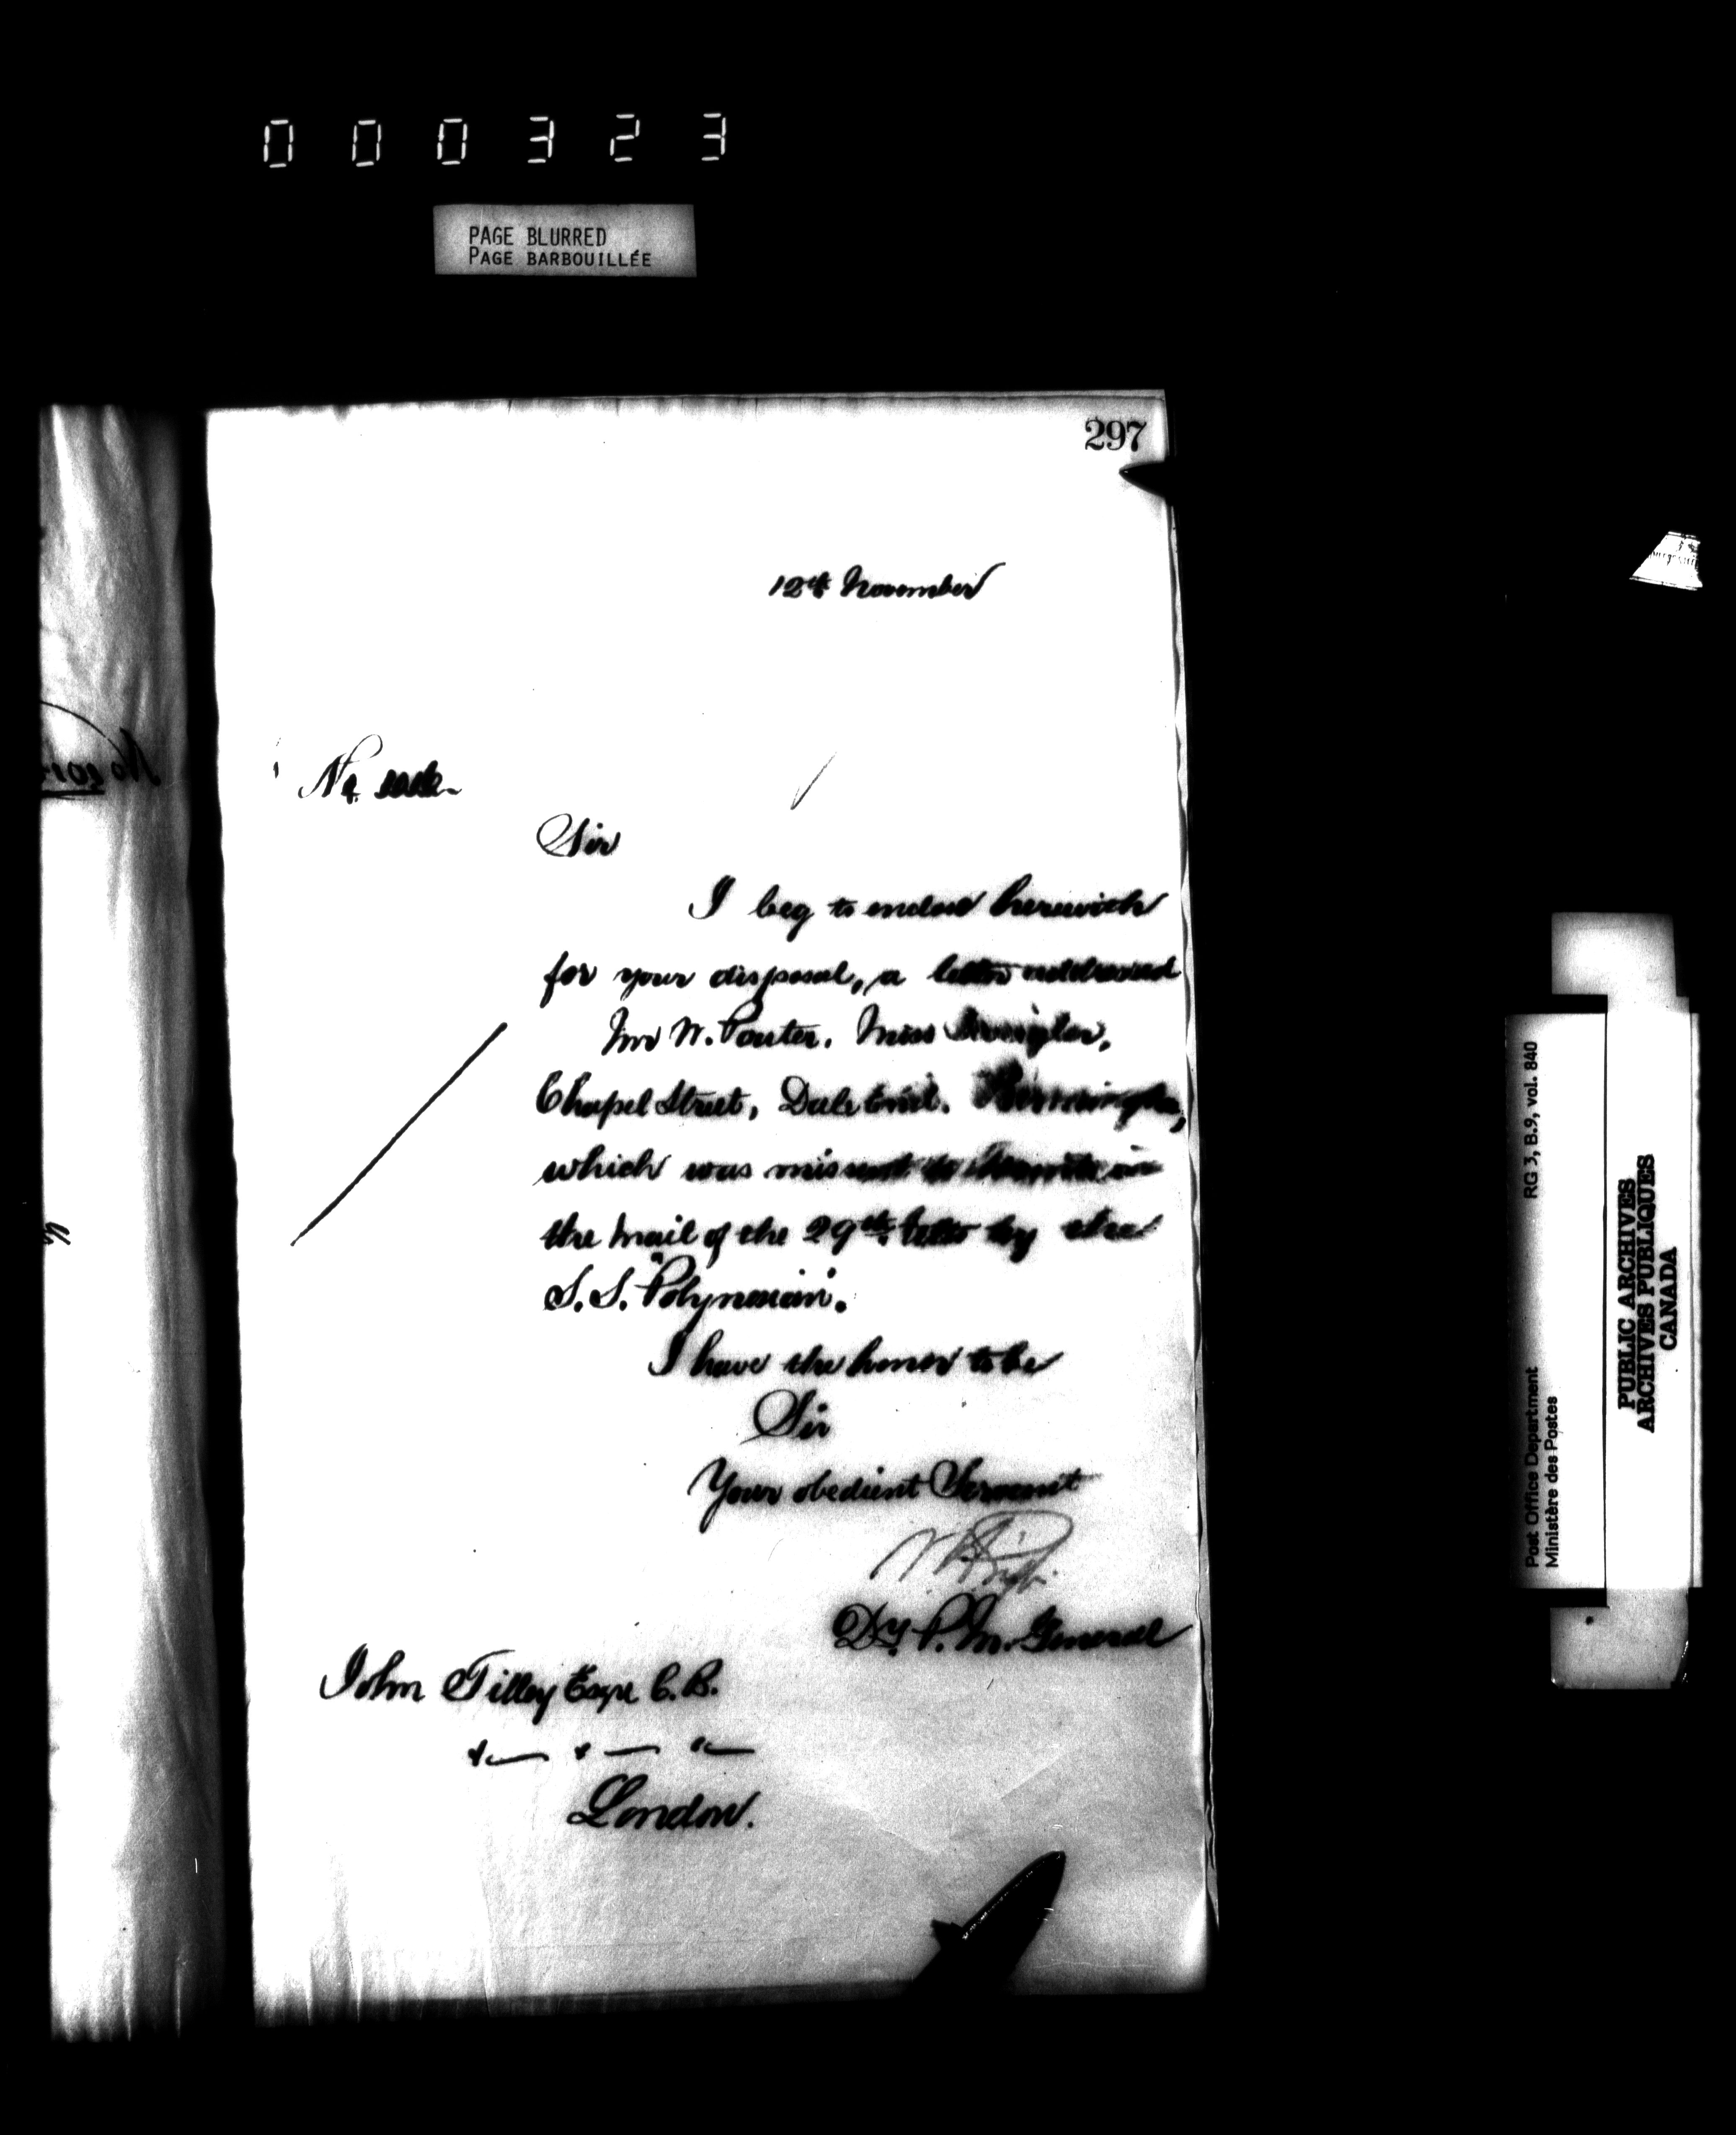 000323
PAGE BLURRED
PAGE BARBOUILLÉE
297
12th November
No.
Sir
I beg to enclose herewith
for your disposal, a letter addressed
W. Porter. Miss
Chapel Street, Dale End.
which was missent to in
the Mail of the 29th by the
S.S. "Polynesian".
I have the honor to be
Sir
Your obedient Servant
Dy. P. M. General
John Tilley Esqre C.B.
London.
Post Office Department RG 3, B.9, vol. 840
Ministère des Postes
PUBLIC ARCHIVES
ARCHIVES PUBLIQUES
CANADA